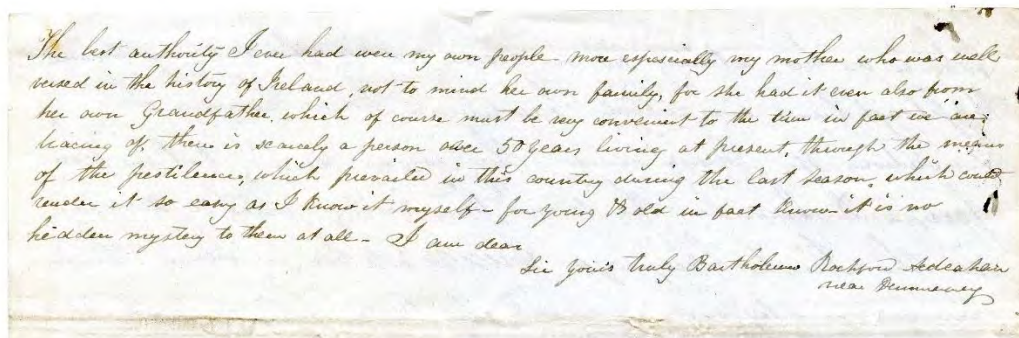 The best authority I ever had were my own people - more especially my mother who was well
versed in the history of Ireland, not to mind her own family, for she had it even also from
her own Grandfather, which of course must be very convenient to the time in fact we are
tracing of, there is scarcely a person over 50 years living at present, through the means
of the pestilence, which prevailed in this country during the last season, which could
render it so easy as I know it myself - for young & old in fact know - it is no
hidden mystery to them at all - I am dear
Sir yours truly Bartholomew
near